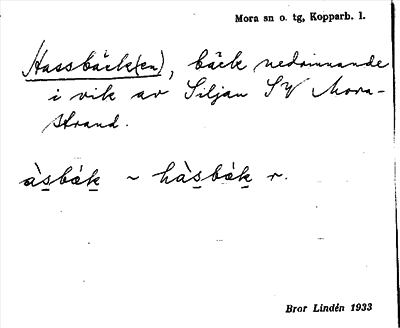 Mora sn o. tg, Kopparb. l.
Hassbäck(en), bäck nedrinnande
i vik av Siljan SV Mora-
strand.
àsbäk ~ hàsbäk r.
Bror Lindén 1933